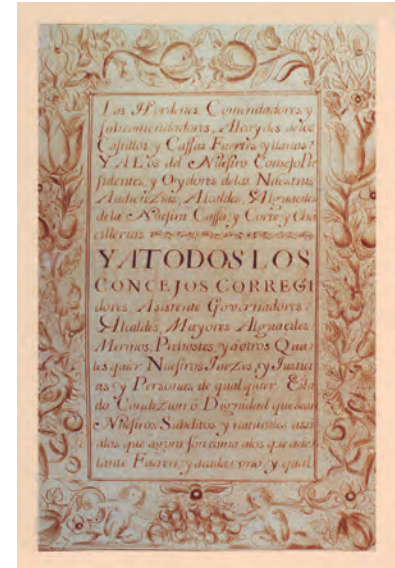 Las Hordenes Comendadores y
subcomendadores, Alcaydes de los
Castillos y Cassas Fuertes y llanas
Y A Los del Nuestro Consejo Pre
sidentes, y Oydores de las Nuestras
Audienzias, Alcaldes, Alguaciles
de la Nuestra Cassa, y Corte, y Chan
cillerias
Y A TODOS LOS
CONCEJOS CORREGI
dores, Asistente Governadores
Alcaldes, Mayores Alguaciles
Merinos, Prebostes, y a otros Qua
les quier Nuestros Juezes, y Justici
as y Personas de qual quier Esta
do Condizion ò Dignidad que sean
Nuestros Subditos y naturales assi
alos que agora son como alos que ade
lante Fueren y acada vno y qual